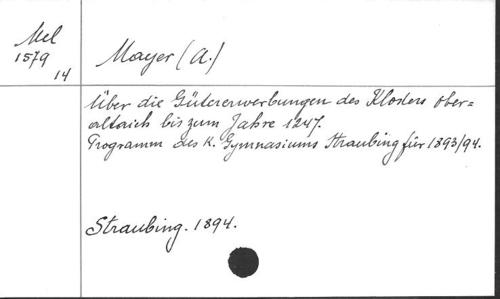 Mel
1579
14
Mayer (A.)
Über die Gütererwerbungen des Klosters Ober=
altaich bis zum Jahre 1247.
Programm des K. Gymnasiums Straubing für 1893/94.
Straubing. 1894.